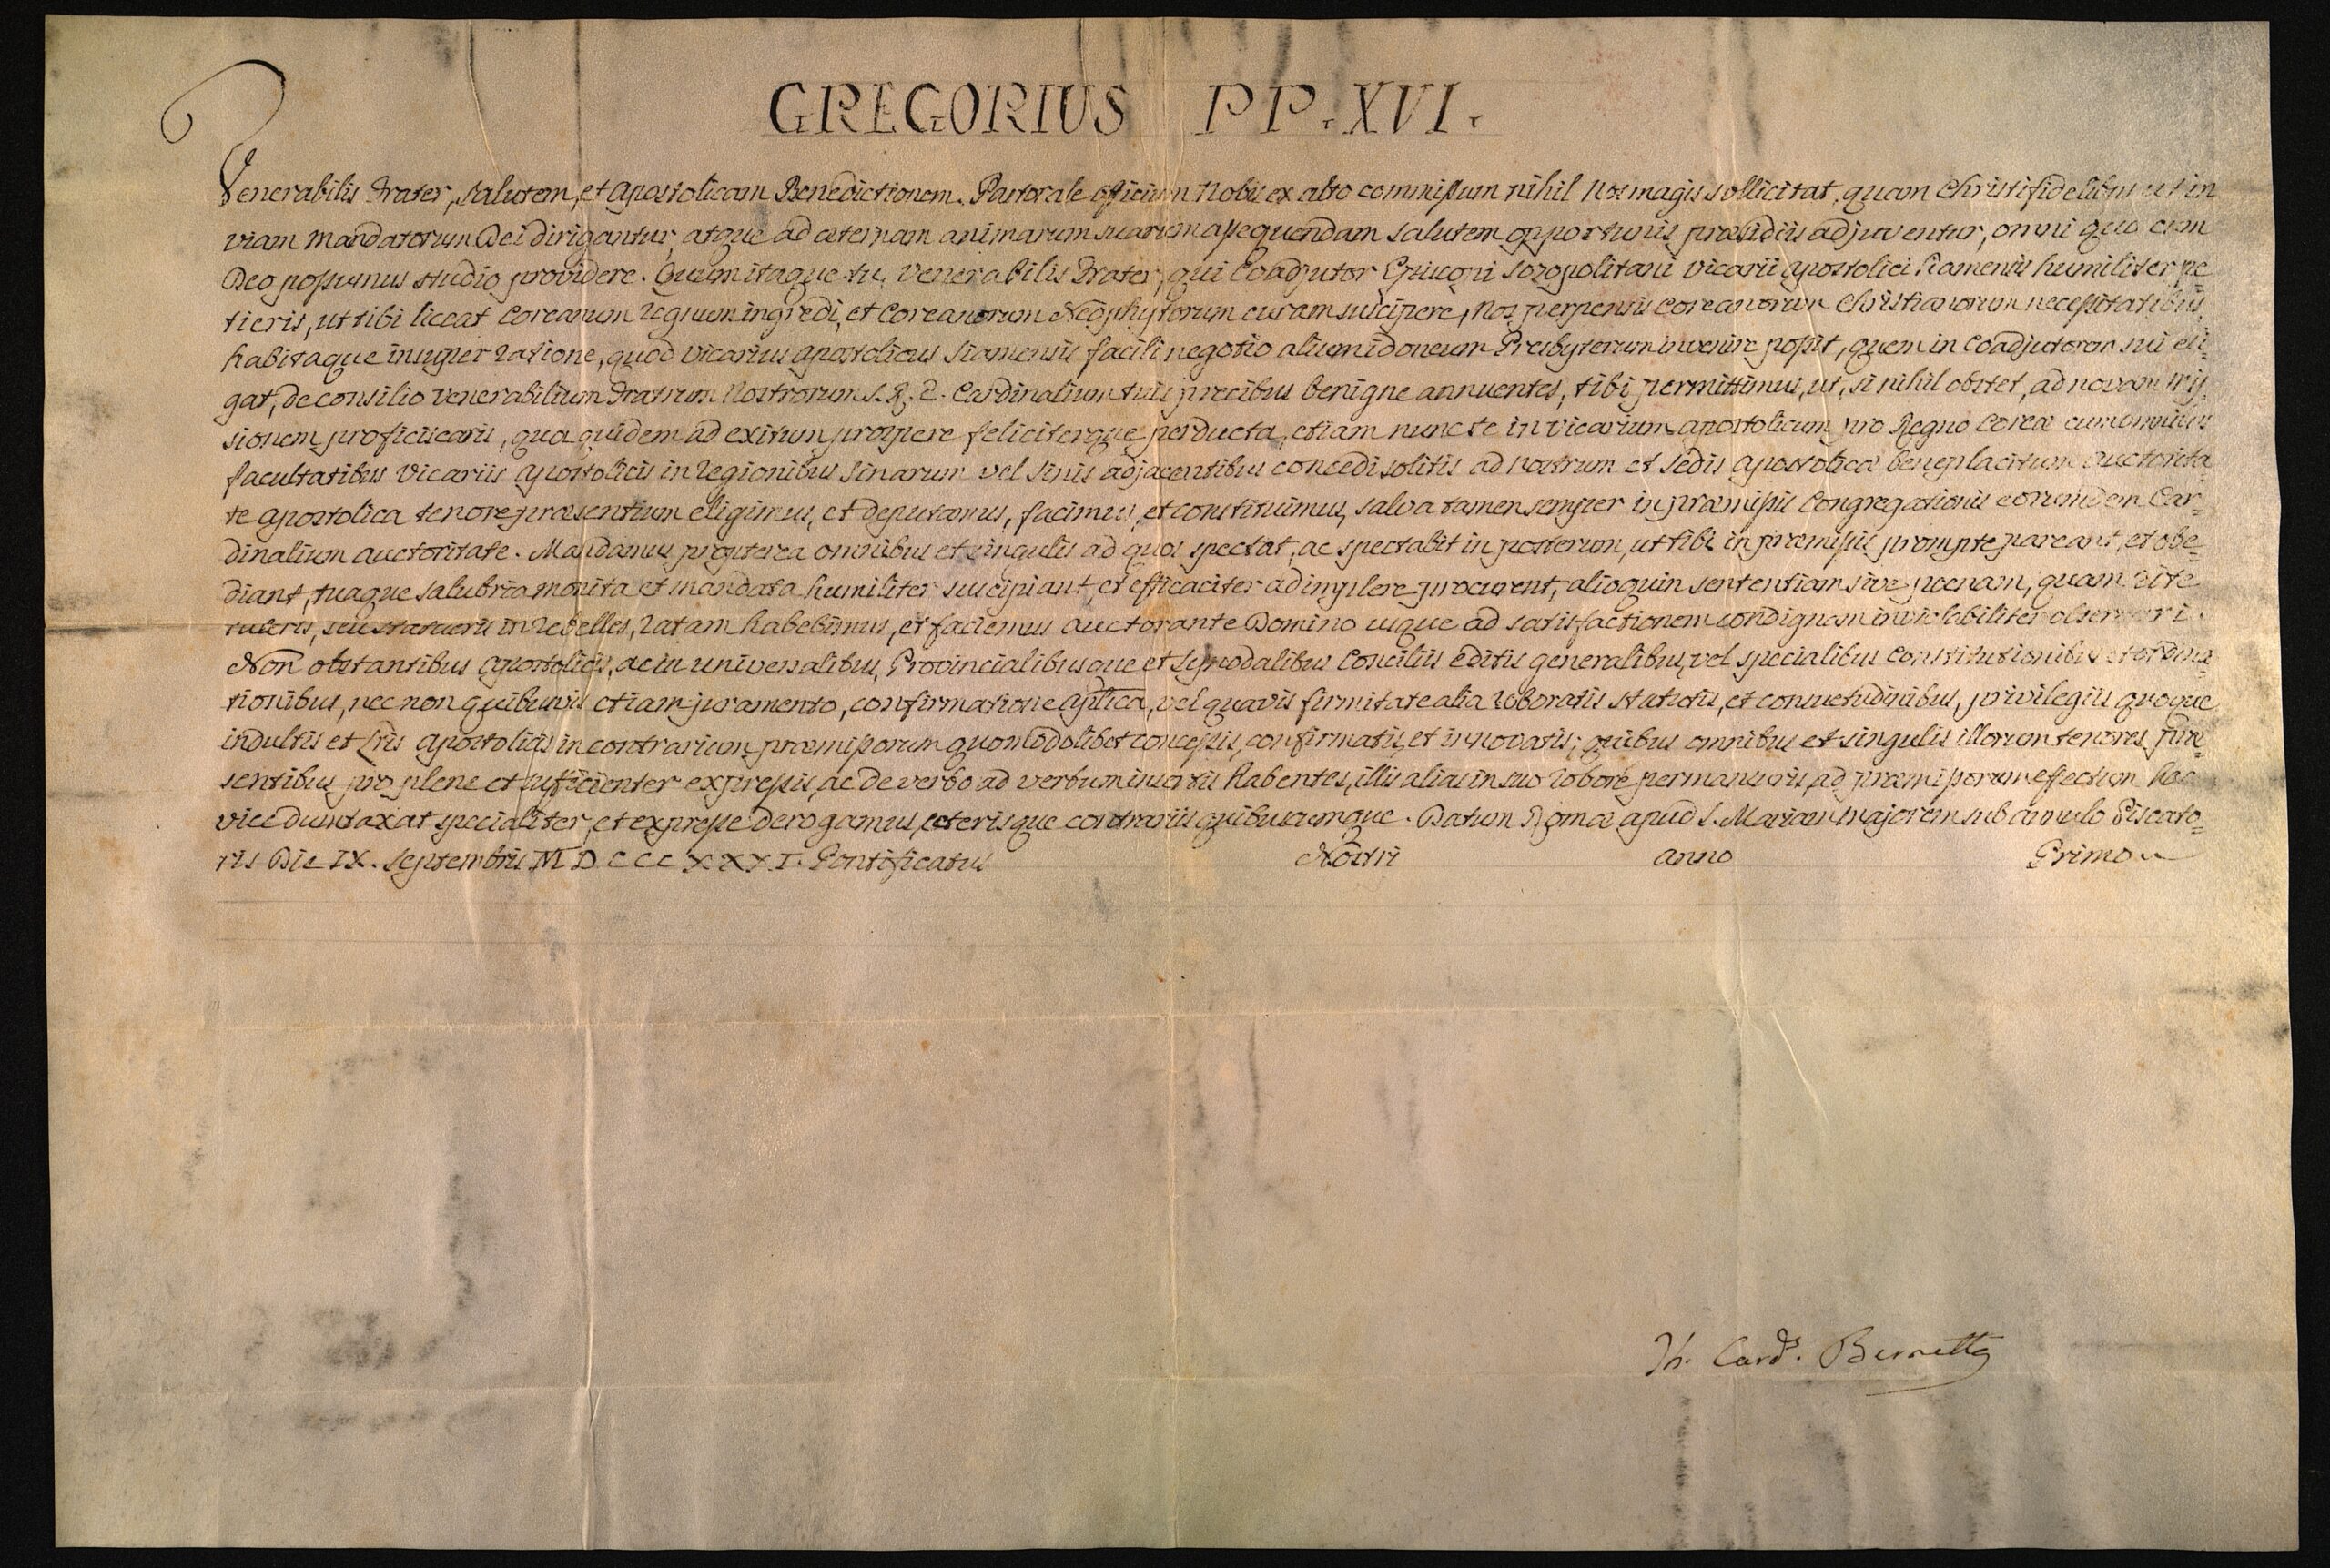 GREGORIUS PP. XVI.
Venerabilis Frater, salutem, et Apostolicam Benedictionem. Pastorale officium Nobis ex alto commissum nihil Nos magis sollicitat, quam Christifidelibus ut in
viam mandatorum Dei dirigantur, atque ad æternam animarum suarum assequendam salutem opportunis præsidiis adjuventur, omni quo cum
Deo possumus studio providere. Quum itaque tu, Venerabilis Frater, qui Coadjutor Episcopi Sozopolitani Vicarii Apostolici Siamensis humiliter pe
tieris, ut tibi liceat Coreanum Regnum ingredi, et Coreanorum Neophytorum curam suscipere, Nos perpensis Coreanorum Christianorum necessitatibus,
habitaque insuper ratione, quod Vicarius Apostolicus Siamensis facili negotio alium idoneum Presbyterum invenire possit, quem in Coadjutorem sui eli=
gat, de consilio Venerabilium Fratrum Nostrorum S. R. E. Cardinalium tuis precibus benigne annuentes, tibi permittimus, ut, si nihil obstet, ad novam mis
sionem proficiscaris, qua quidem ad exitum prospere feliciterque perducta, etiam nunc te in Vicarium Apostolicum pro Regno Coreæ cum omnibus
facultatibus Vicariis Apostolicis in regionibus Sinarum vel Sinis adjacentibus concedi solitis ad Nostrum et Sedis Apostolicæ beneplacitum auctorita
te Apostolica tenore præsentium eligimus, et deputamus, facimus, et constituimus, salva tamen semper in præmissis Congregationis eorumdem Car=
dinalium auctoritate. Mandamus propterea omnibus et singulis ad quos spectat, ac spectabit in posterum, ut tibi in præmissis prompte pareant, et obe=
diant, tuaque salubria monita et mandata humiliter suscipiant, et efficaciter adimplere procurent, alioquin sententiam sive pœnam, quam rite
tuleris, seu statueris in rebelles, ratam habebimus, et faciemus auctorante Domino usque ad satisfactionem condignam inviolabiliter observari.
Non obstantibus Apostolicis, ac in universalibus, Provincialibusque et Synodalibus Conciliis editis generalibus, vel specialibus Constitutionibus et ordina
tionibus, nec non quibusvis etiam juramento, confirmatione aplica, vel quavis firmitate alia roboratis statutis, et consuetudinibus, privilegiis quoque
indultis et Lris Apostolicis in contrarium præmissorum quomodolibet concessis, confirmatis, et innovatis; quibus omnibus et singulis illorum tenores præ
sentibus pro plene et sufficienter expressis, ac de verbo ad verbum insertis habentes, illis alias in suo robore permansuris, ad præmissorum effectum hac
vice dumtaxat specialiter, et expresse derogamus, ceterisque contrariis quibuscumque. Datum Romæ apud S. Mariam majorem sub annulo Piscato=
ris Die IX. Septembris MDCCCXXXI. Pontificatus Nostri anno Primo
Th. Card. Bernetti